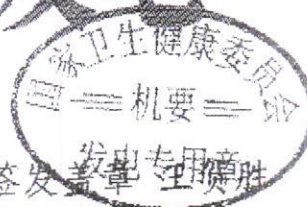 国家卫生健康委员会
机要
发出专用章
签发盖章 王贺胜